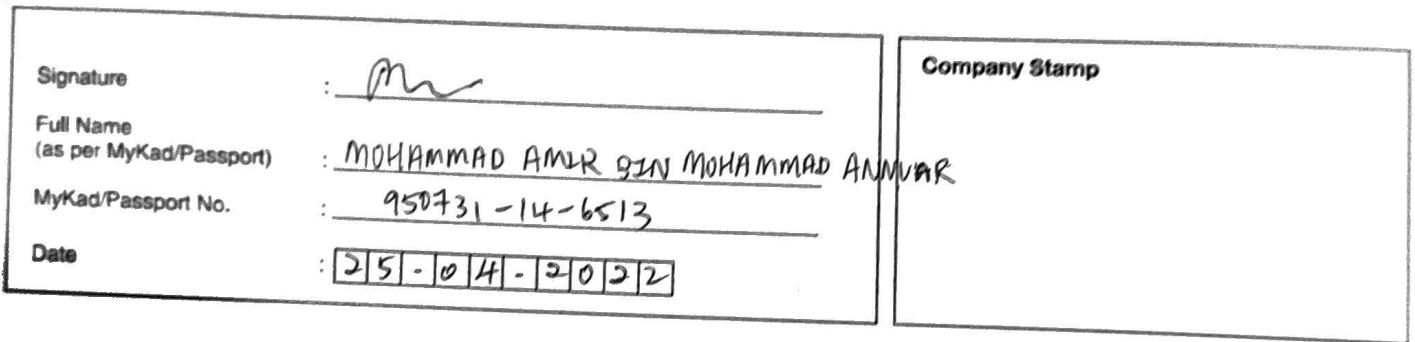 Signature :
Full Name
(as per MyKad/Passport) : MOHAMMAD AMIR BIN MOHAMMAD ANNUAR
MyKad/Passport No. : 950731-14-6513
Date : 25-04-2022
Company Stamp